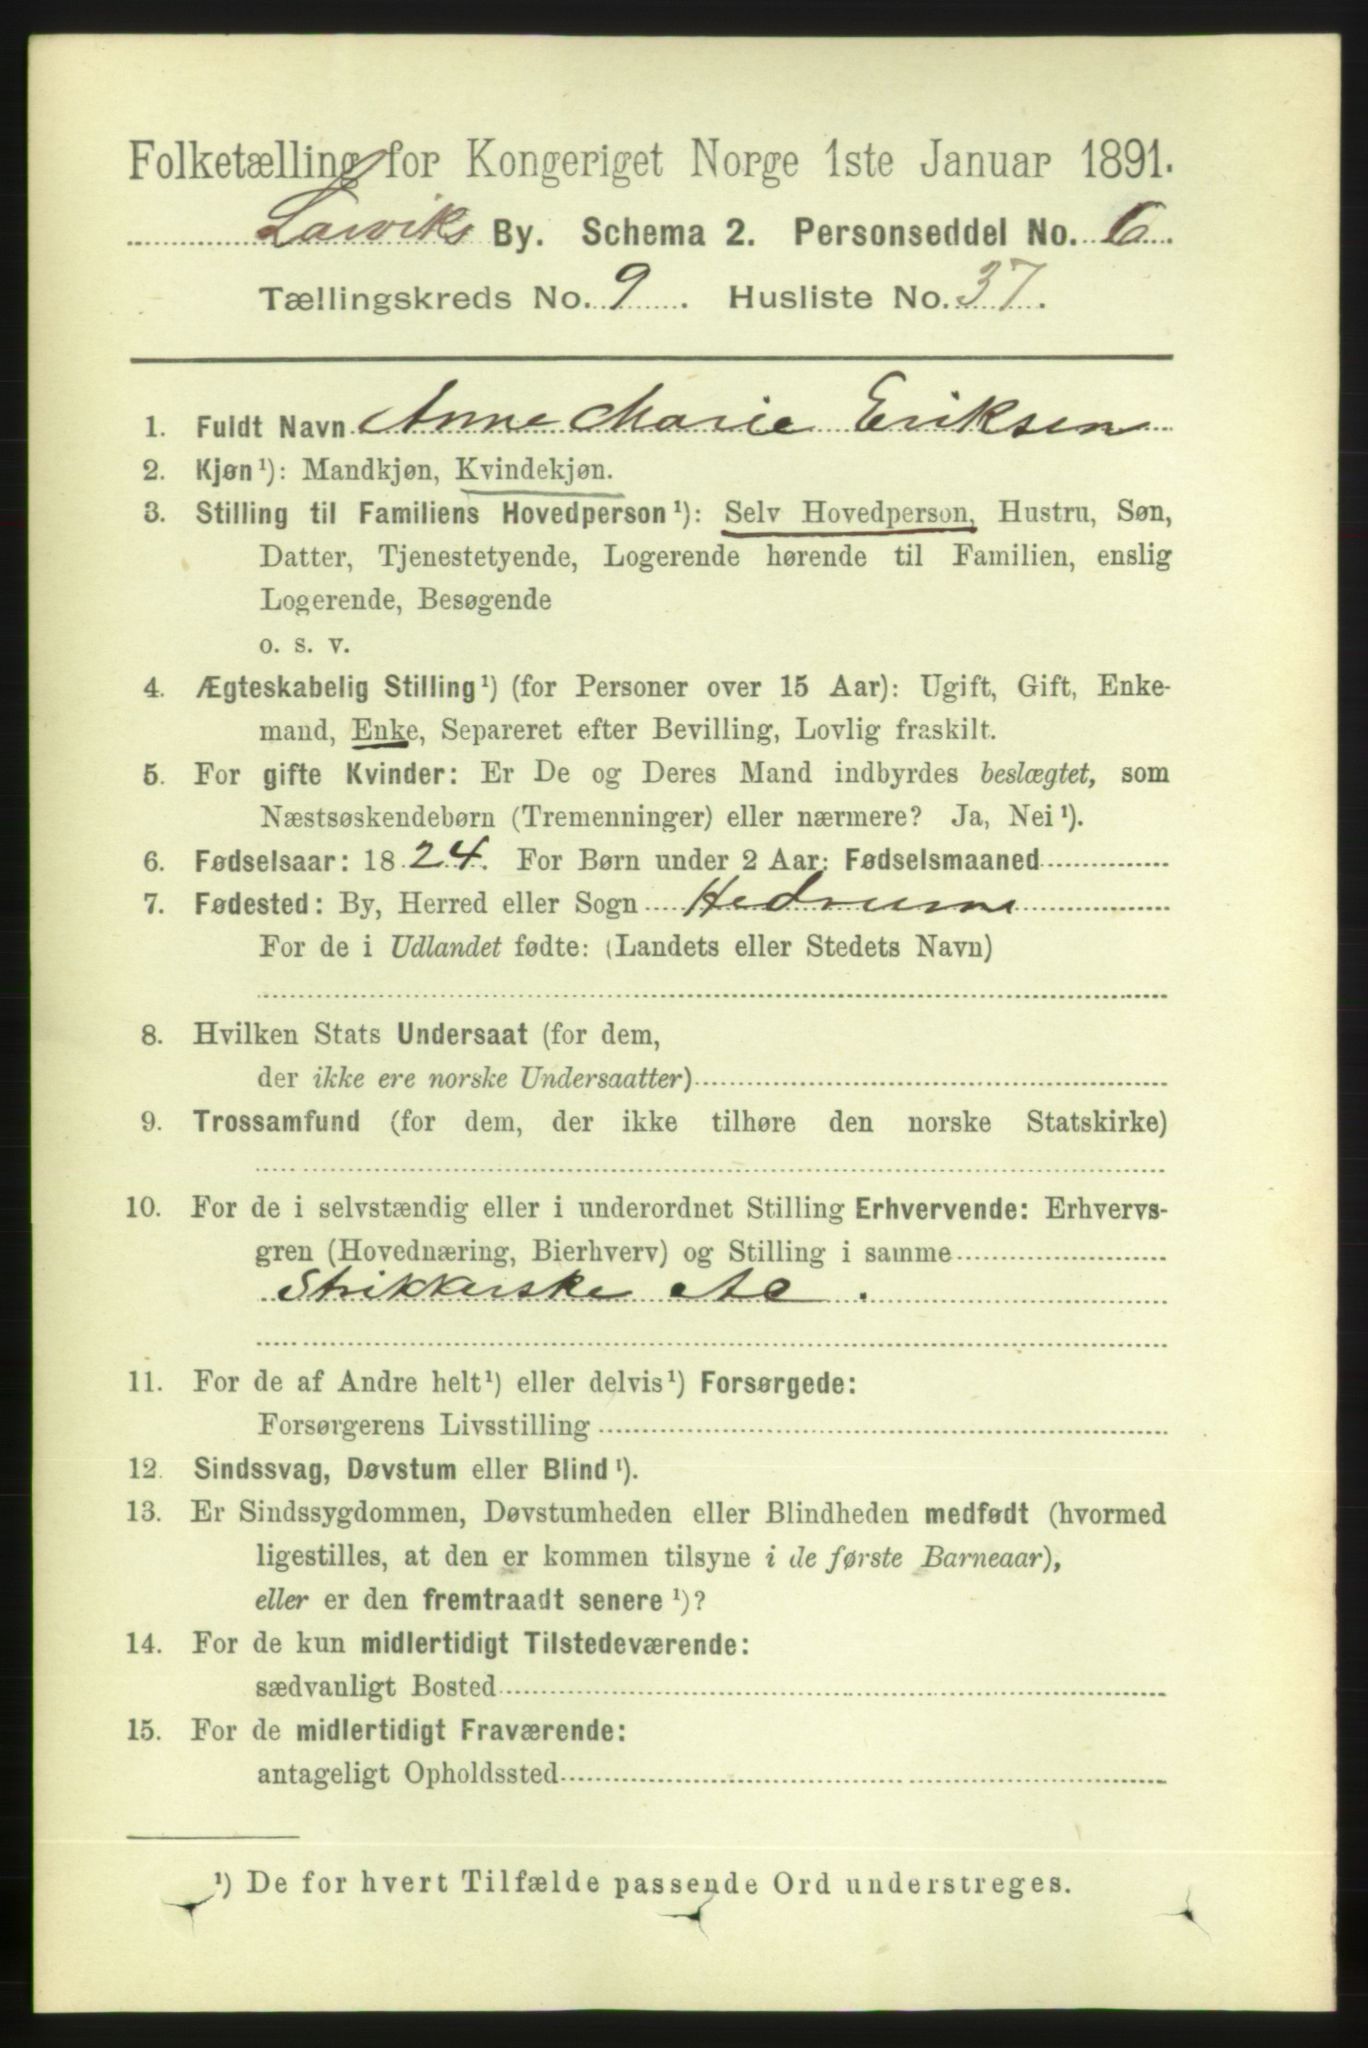 Folketælling for Kongeriget Norge 1ste Januar 1891.
Larviks By. Schema 2. Personseddel No. 6.
Tællingskreds No. 9. Husliste No. 37.
1. Fuldt Navn Anne Marie Eriksen
2. Kjøn¹): Mandkjøn, Kvindekjøn.
3. Stilling til Familiens Hovedperson¹): Selv Hovedperson, Hustru, Søn,
Datter, Tjenestetyende, Logerende hørende til Familien, enslig
Logerende, Besøgende
o. s. v.
4. Ægteskabelig Stilling¹) (for Personer over 15 Aar): Ugift, Gift, Enke-
mand, Enke, Separeret efter Bevilling, Lovlig fraskilt.
5. For gifte Kvinder: Er De og Deres Mand indbyrdes beslægtet, som
Næstsøskendebørn (Tremenninger) eller nærmere? Ja, Nei¹).
6. Fødselsaar: 1824. For Børn under 2 Aar: Fødselsmaaned
7. Fødested: By, Herred eller Sogn Hedrum
For de i Udlandet fødte: (Landets eller Stedets Navn)
8. Hvilken Stats Undersaat (for dem,
der ikke ere norske Undersaatter)
9. Trossamfund (for dem, der ikke tilhøre den norske Statskirke)
10. For de i selvstændig eller i underordnet Stilling Erhvervende: Erhvervs-
gren (Hovednæring, Bierhverv) og Stilling i samme
Strikkerske
11. For de af Andre helt¹) eller delvis¹) Forsørgede:
Forsørgerens Livsstilling
12. Sindssvag, Døvstum eller Blind¹).
13. Er Sindssygdommen, Døvstumheden eller Blindheden medfødt (hvormed
ligestilles, at den er kommen tilsyne i de første Barneaar),
eller er den fremtraadt senere¹)?
14. For de kun midlertidigt Tilstedeværende:
sædvanligt Bosted
15. For de midlertidigt Fraværende:
antageligt Opholdssted
¹) De for hvert Tilfælde passende Ord understreges.